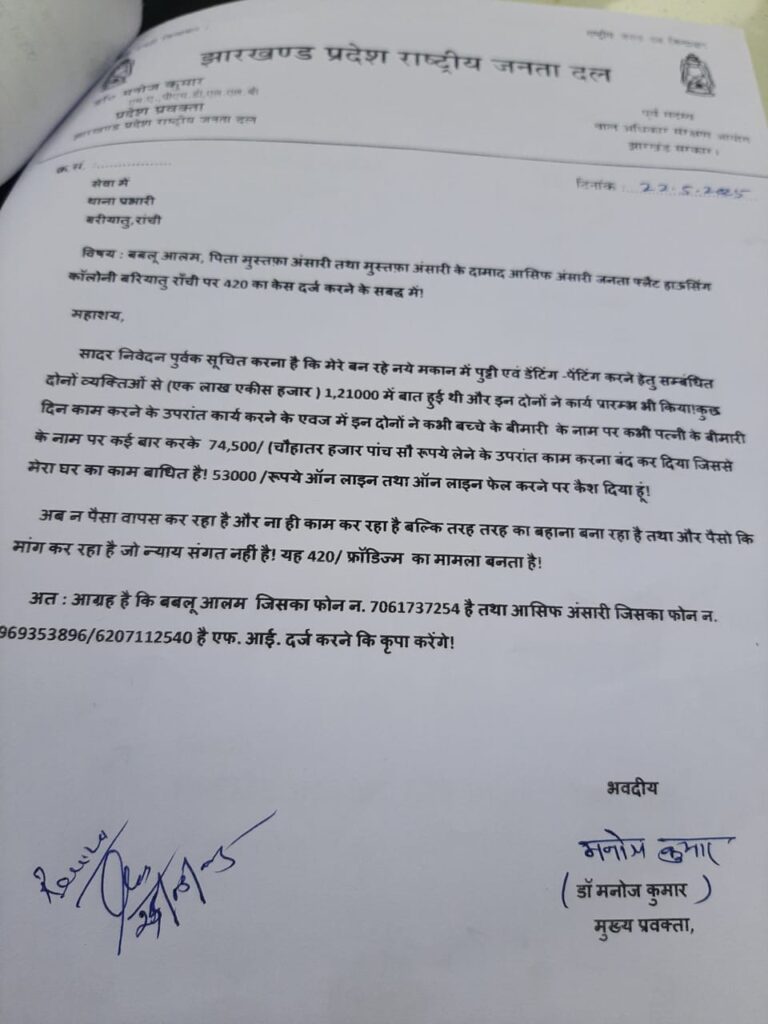 झारखण्ड प्रदेश राष्ट्रीय जनता दल
डॉ० मनोज कुमार
प्रदेश प्रवक्ता
झारखण्ड प्रदेश राष्ट्रीय जनता दल
पूर्व सदस्य
बाल अधिकार संरक्षण आयोग
झारखंड सरकार।
क्र.सं. :..................
दिनांक : 22.5.2025
सेवा में
थाना प्रभारी
बरीयातु,रांची
विषय : बबलू आलम, पिता मुस्तफ़ा अंसारी तथा मुस्तफ़ा अंसारी के दामाद आसिफ अंसारी जनता फ्लैट हाऊसिंग
कॉलोनी बरियातु राँची पर 420 का केस दर्ज करने के सबद्ध में!
महाशय,
सादर निवेदन पुर्वक सूचित करना है कि मेरे बन रहे नये मकान में पुट्टी एवं डेंटिंग -पेंटिंग करने हेतु सम्बंधित
दोनों व्यक्तिओं से (एक लाख एकीस हजार ) 1,21000 में बात हुई थी और इन दोनों ने कार्य प्रारम्भ भी किया!कुछ
दिन काम करने के उपरांत कार्य करने के एवज में इन दोनों ने कभी बच्चे के बीमारी के नाम पर कभी पत्नी के बीमारी
के नाम पर कई बार करके 74,500/ (चौहातर हजार पांच सौ रूपये लेने के उपरांत काम करना बंद कर दिया जिससे
मेरा घर का काम बाधित है! 53000 /रूपये ऑन लाइन तथा ऑन लाइन फेल करने पर कैश दिया हूं!
अब न पैसा वापस कर रहा है और ना ही काम कर रहा है बल्कि तरह तरह का बहाना बना रहा है तथा और पैसो कि
मांग कर रहा है जो न्याय संगत नहीं है! यह 420/ फ्रॉडिज्म का मामला बनता है!
अत : आग्रह है कि बबलू आलम जिसका फोन न. 7061737254 है तथा आसिफ अंसारी जिसका फोन न.
969353896/6207112540 है एफ. आई. दर्ज करने कि कृपा करेंगे!
भवदीय
मनोज कुमार
(डॉ मनोज कुमार )
मुख्य प्रवक्ता,